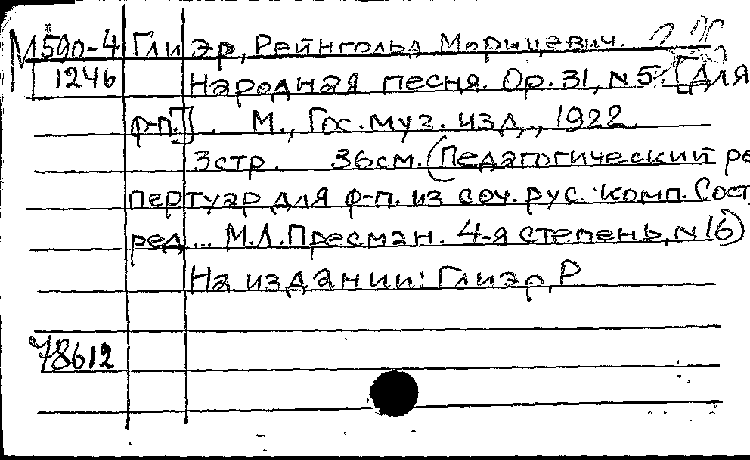 М 590-4 Глиэр, Рейнгольд Морицевич.
1246 Народная песня. Op. 31, N 5. [Для
ф-п.]. М., Гос. муз. изд., 1922.
3 стр. 36 см. (Педагогический ре
пертуар для ф-п. из соч. рус. комп. Сост.
ред... М.Л. Пресман. 4-я степень, N 16)
На издании: Глиэр, Р
78612